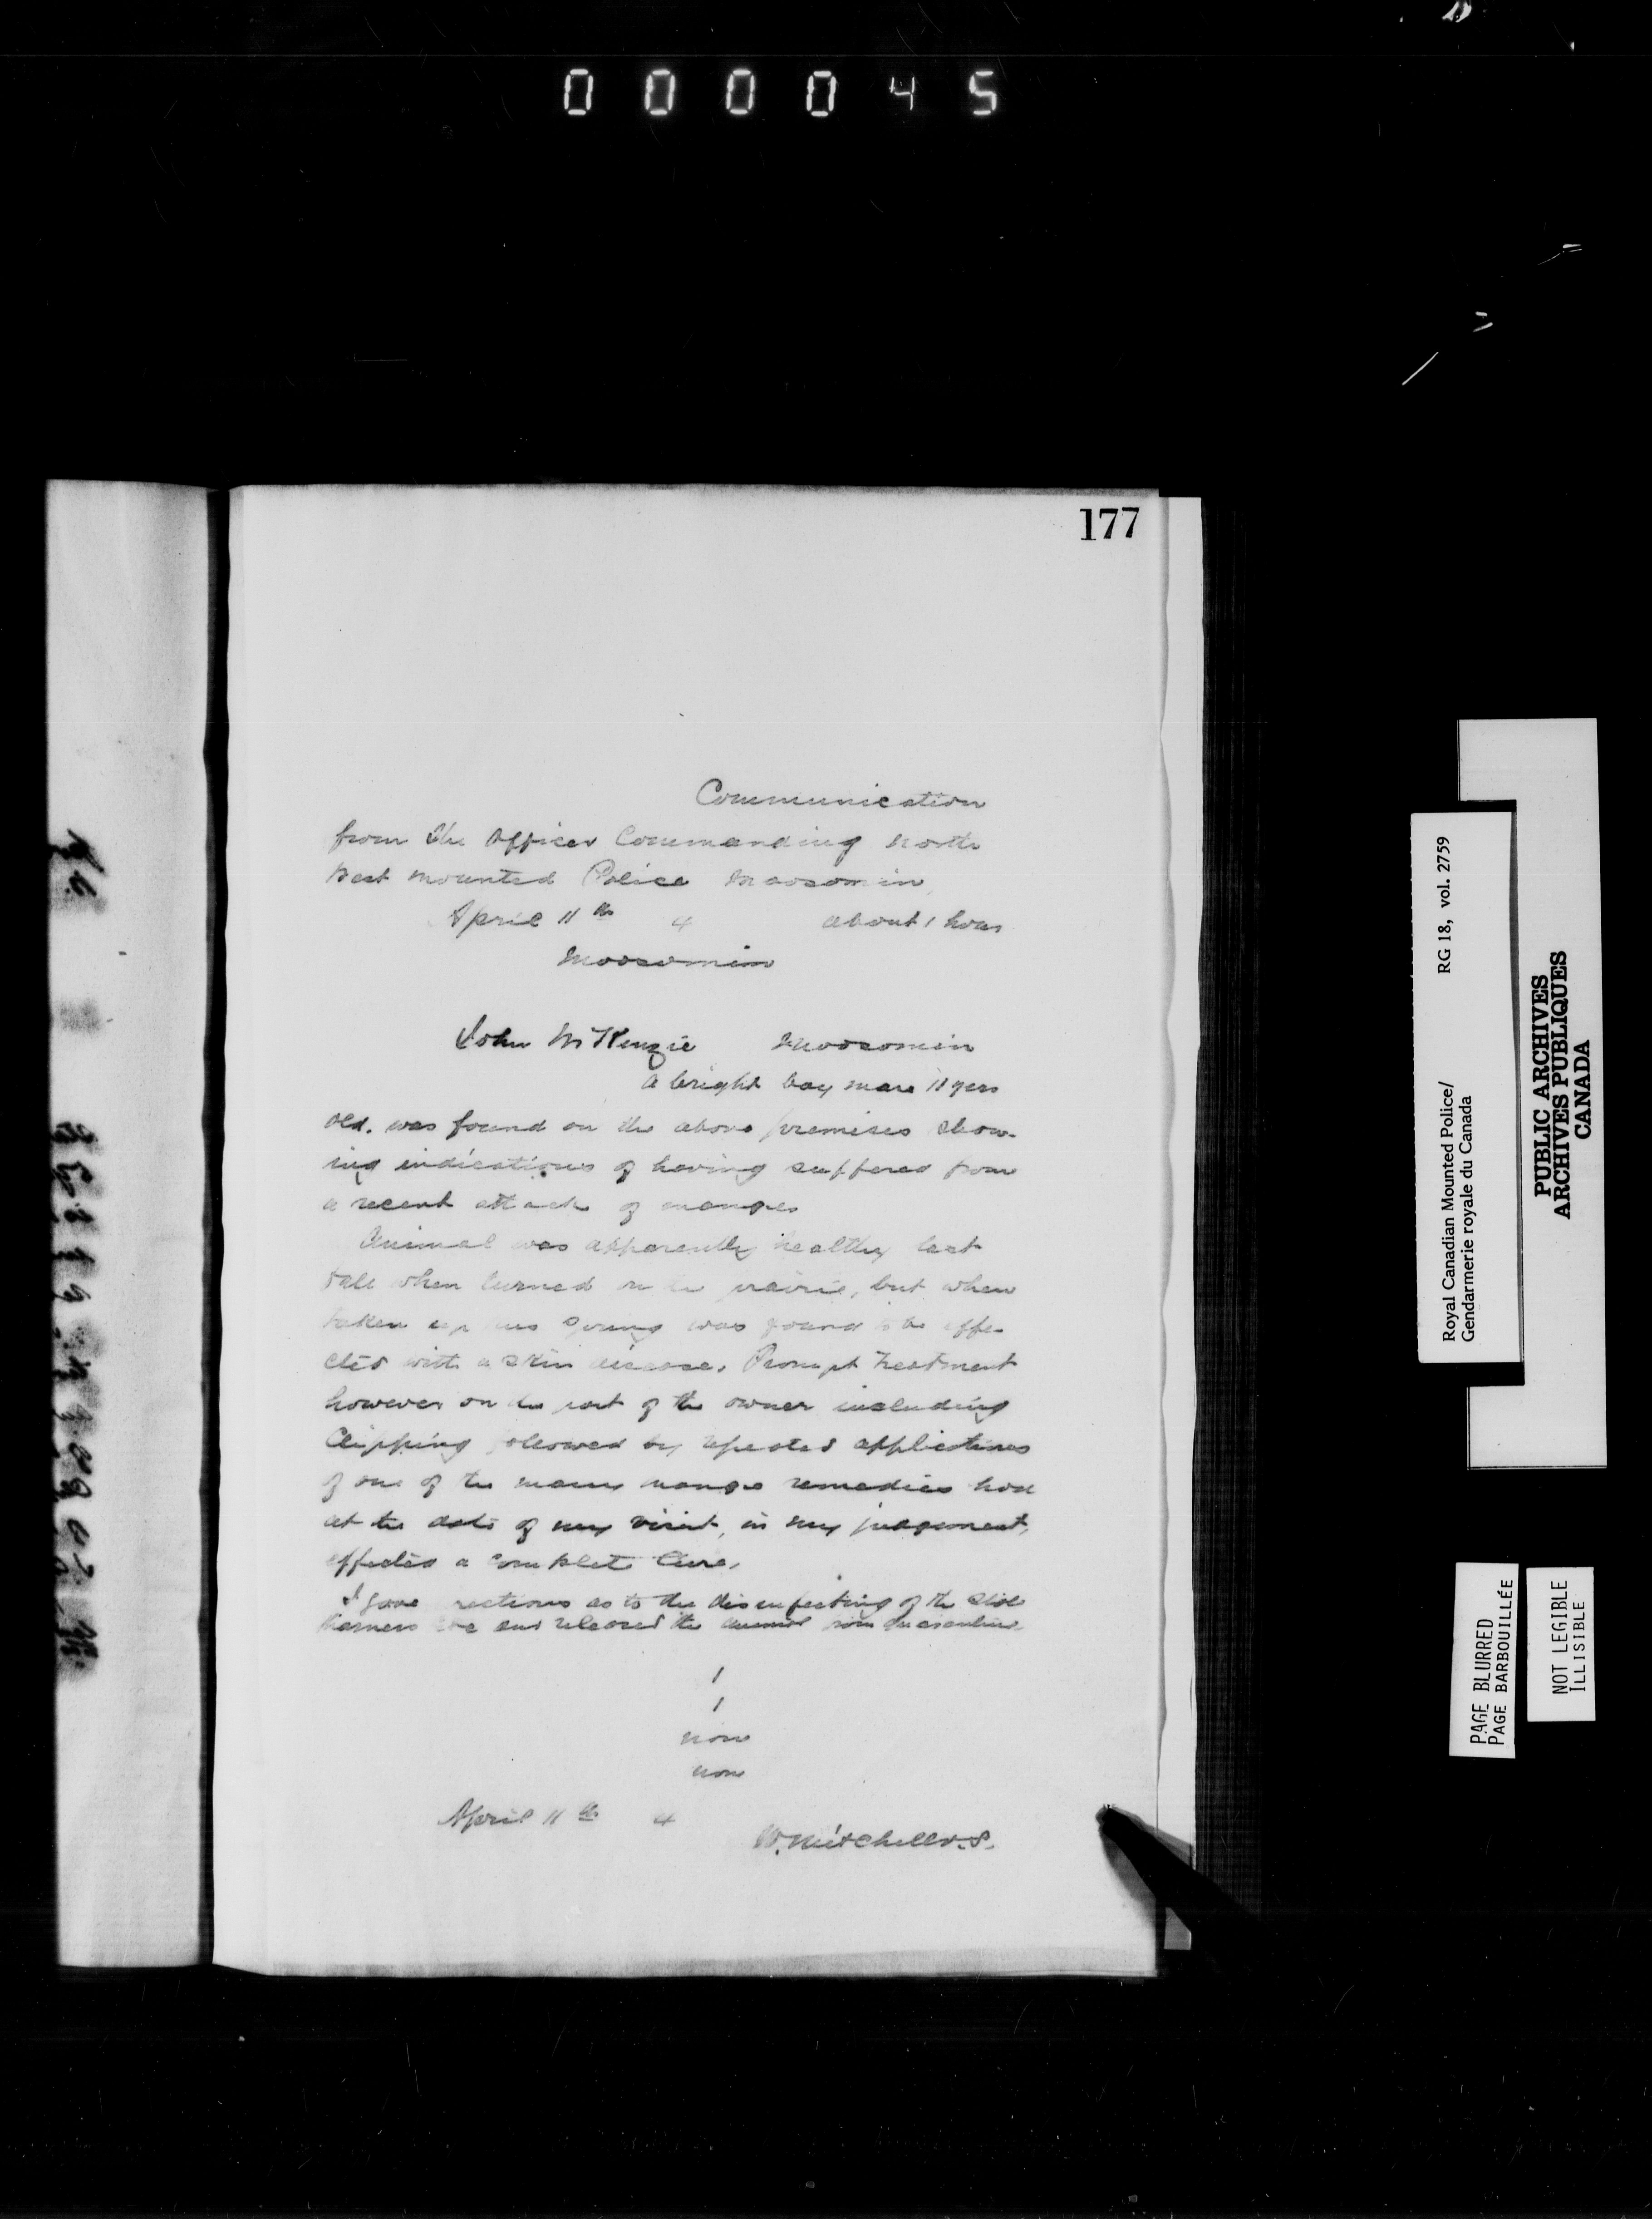 000045
177
Communication
from the Officer Commanding North
West Mounted Police Moosomin
April 11th 4 about 1 hour
Moosomin
John McKenzie Moosomin
A bright bay mare 11 years
old. was found on the above premises show-
ing indications of having suffered from
a recent attack of mange
Animal was apparently healthy last
Fall when turned on the prairie, but when
taken up this Spring was found to be affe-
cted with a skin disease. Prompt treatment
however on the part of the owner including
Clipping followed by repeated applications
of one of the many mange remedies had
at the date of my visit, in my judgement,
effected a complete Cure.
I gave rections as to the disinfecting of the
Harness and released the animal from Quarantine
1
1
none
none
April 11th 4
W. Mitchell V.S.
Royal Canadian Mounted Police/ RG 18, vol. 2759
Gendarmerie royale du Canada
PUBLIC ARCHIVES
ARCHIVES PUBLIQUES
CANADA
PAGE BLURRED
PAGE BARBOUILLÉE
NOT LEGIBLE
ILLISIBLE